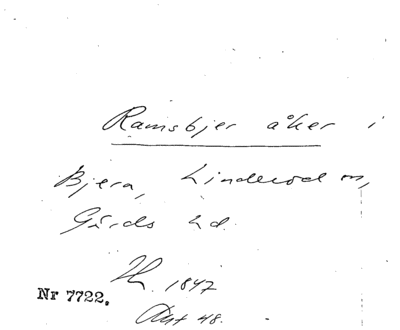 Ramsbjer åker i
Bjera, Linderöd sn,
Gärds hd.
1847
Nr 7722.
Avst 48.